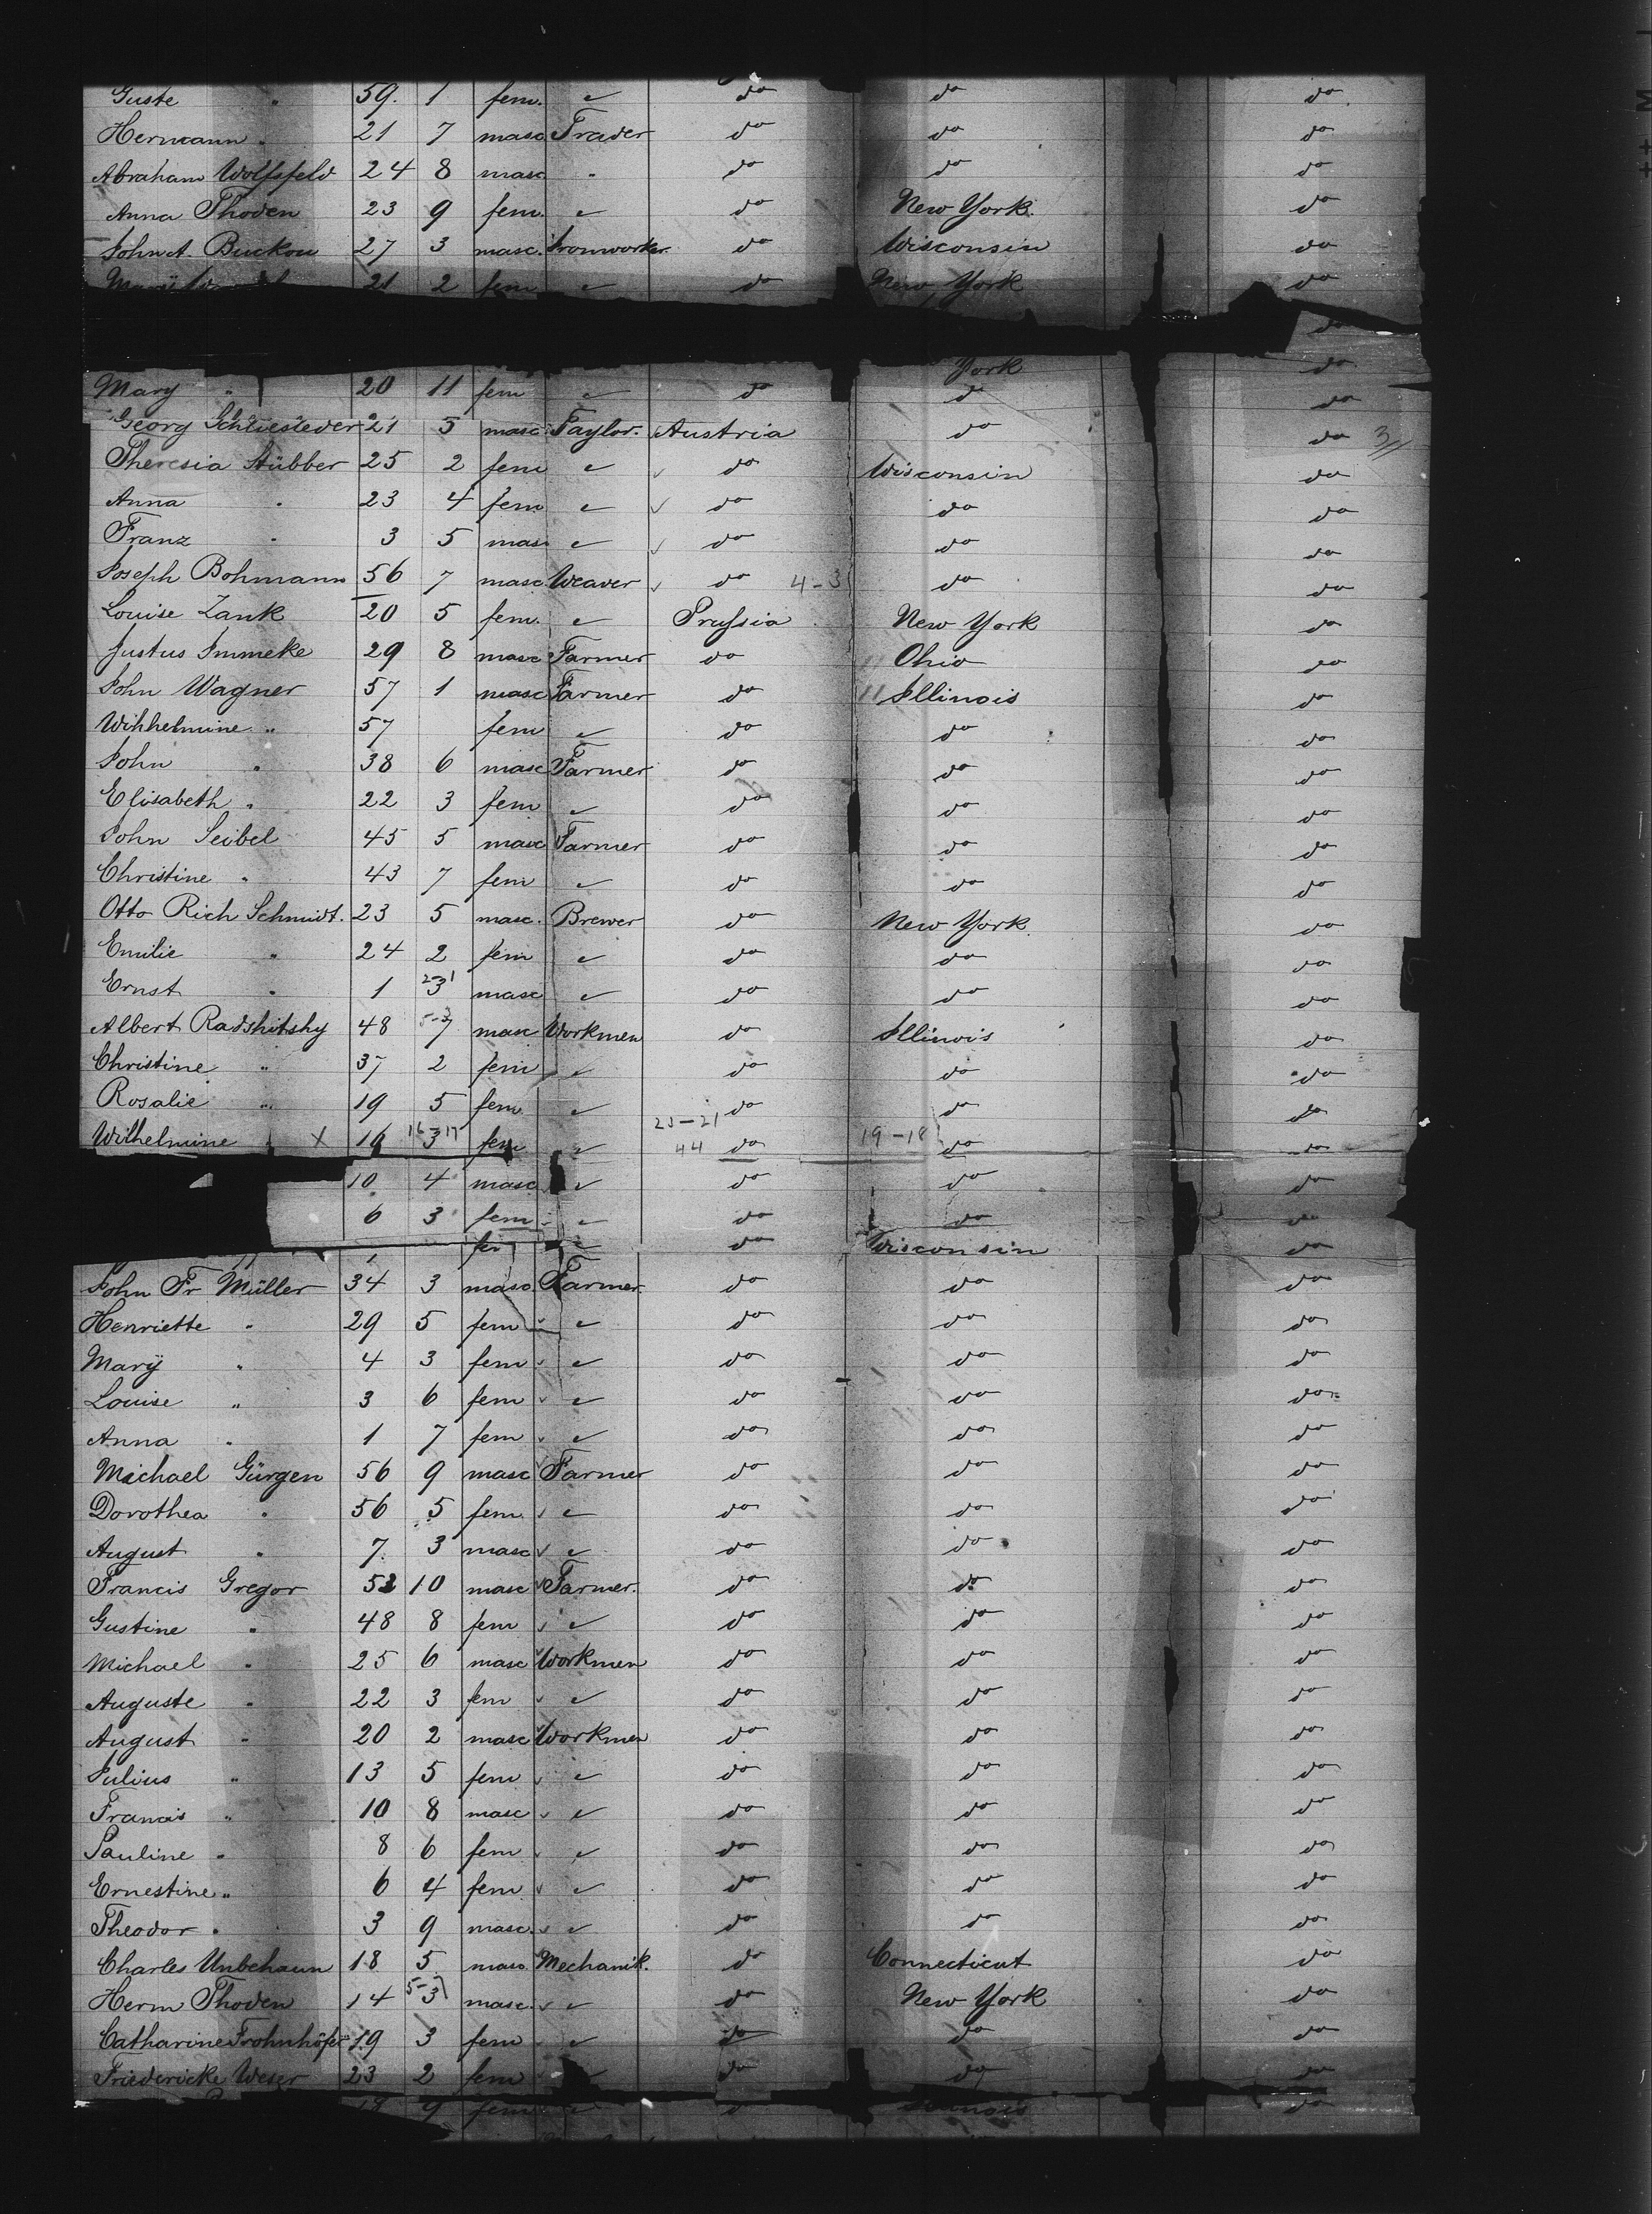 Guste " 59. 1 fem. do do do
Hermann " 21 7 masc Trader do do do
Abraham Wolfsfeld 24 8 masc " do do do
Anna Thoden 23 9 fem. do New York. do
John A. Buckow 27 3 masc. Ironworker do Wisconsin do
21 2 fem do New York do
do
York do
Mary " 20 11 fem do do do
Georg 21 5 masc Taylor. Austria do do 3
Theresia Stübber 25 2 fem do Wisconsin do
Anna " 23 4 fem do do do
Franz " 3 5 mas do do do
Joseph Bohmann 56 7 masc Weaver do 4-3 do do
Louise Zank 20 5 fem. Prussia New York do
Justus Immeke 29 8 masc Farmer do Ohio do
John Wagner 57 1 masc Farmer do 11 Illinois do
Wihhelmine " 57 fem do do do
John " 38 6 masc Farmer do do do
Elisabeth " 22 3 fem do do do
John Seibel 45 5 masc Farmer do do do
Christine " 43 7 fem do do do
Otto Rich Schmidt. 23 5 masc. Brewer do New York. do
Emilie " 24 2 fem do do do
Ernst " 1 3 masc do do do
Albert Radshitshy 48 7 masc Workmen do Illinois do
Christine " 37 2 fem do do do
Rosalie " 19 5 fem. do do do
Wilhelmine " X 16 3 fem 23-21 44 do 19-18 do do
10 4 masc do do do
6 3 fem do do do
1 do Wisconsin do
John Fr Müller 34 3 masc. Farmer. do do do
Henriette " 29 5 fem do do do
Marÿ " 4 3 fem do do do
Louise " 3 6 fem do do do
Anna " 1 7 fem do do do
Michael Gürgen 56 9 masc Farmer do do do
Dorothea " 56 5 fem. do do do
August " 7. 3 masc do do do
Francis Gregor 52 10 masc Farmer. do do do
Gustine " 48 8 fem do do do
Michael " 25 6 masc Workmen do do do
Auguste " 22 3 fem do do do
August " 20 2 masc Workmen do do do
Julius " 13 5 fem do do do
Francis " 10 8 masc do do do
Pauline " 8 6 fem do do do
Ernestine " 6 4 fem do do do
Theodor " 3 9 masc. do do do
Charles Unbehaun 18 5 masc. Mechanik. do Connecticut do
Herm Thoden 14 3 masc. do New York do
Catharine Frohnhöfer 19 3 fem do do do
Friedericke Weser 23 2 fem do do do
9 fem do